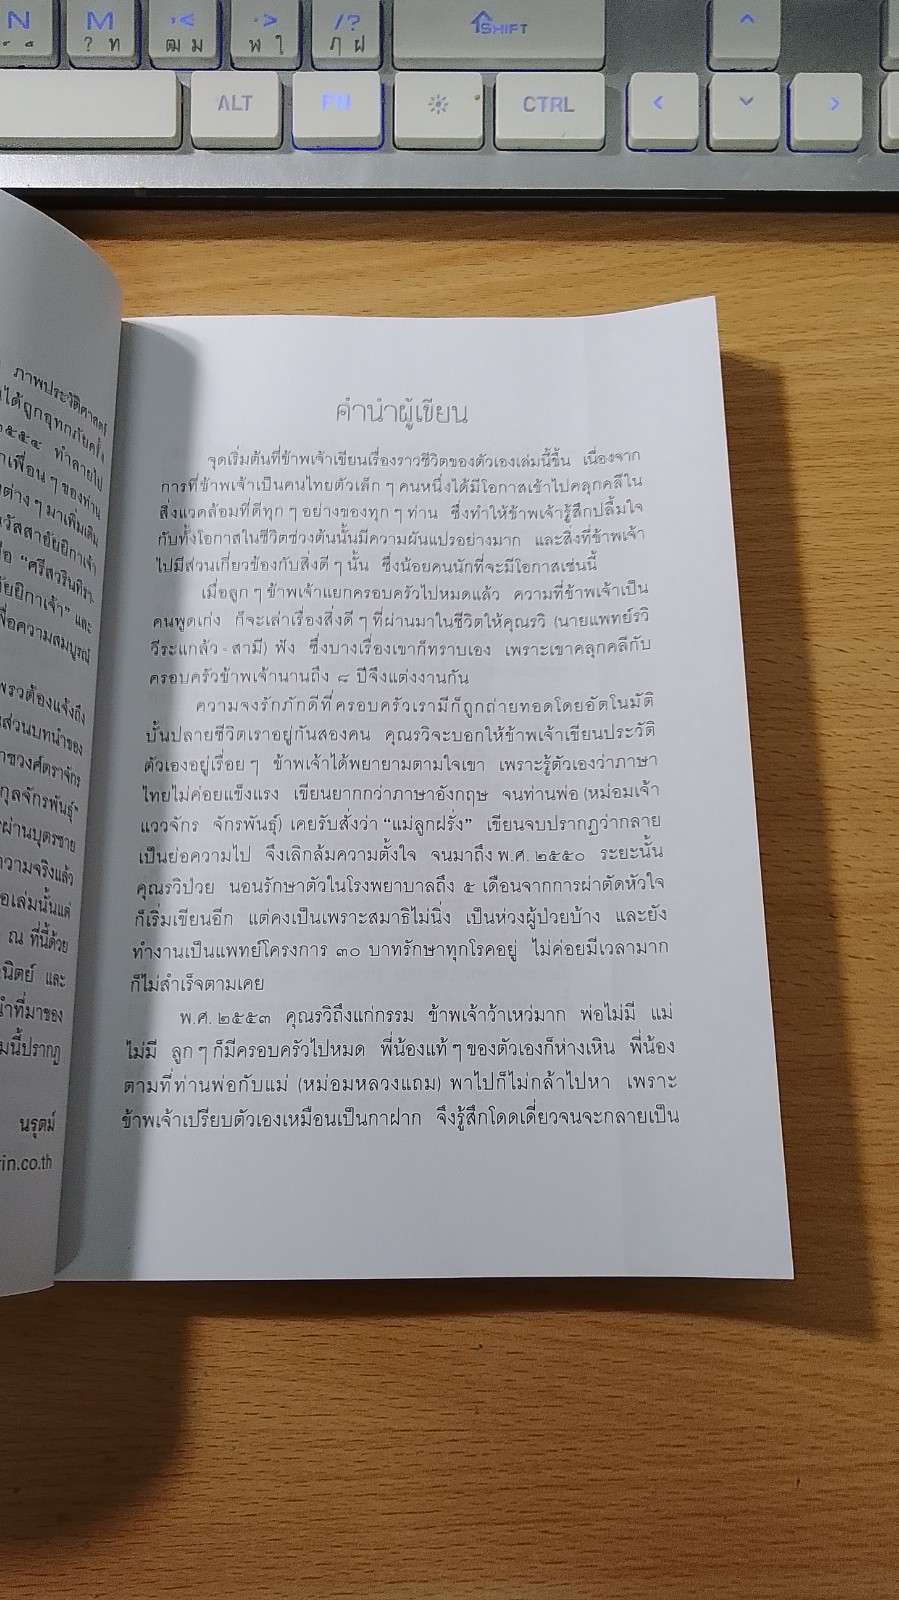 N
M
? ท
, <
ฒ ม
. >
พ ใ
/ ?
ฦ ฝ
SHIFT
ALT
FN
CTRL
ภาพประวัติศาสตร์
ได้ถูกอุทกภัยครั้ง
๒๕๕๔ ทำลายไป
เพื่อน ๆ ของท่าน
ต่าง ๆ มาเพิ่มเติม
วัสสาอัยยิกาเจ้า
"ศรีสวรินทิรา-
อัยยิกาเจ้า" และ
เพื่อความสมบูรณ์
ต้องแจ้งถึง
ส่วนบทนำของ
ศาสตราจารย์
กุลจักรพันธุ์"
ผ่านบุตรชาย
ความจริงแล้ว
เล่มนั้นแต่
ณ ที่นี้ด้วย
และ
ที่มาของ
นี้ปรากฏ
นรุตม์
rin.co.th
คำนำผู้เขียน
จุดเริ่มต้นที่ข้าพเจ้าเขียนเรื่องราวชีวิตของตัวเองเล่มนี้ขึ้น เนื่องจาก
การที่ข้าพเจ้าเป็นคนไทยตัวเล็ก ๆ คนหนึ่งได้มีโอกาสเข้าไปคลุกคลีใน
สิ่งแวดล้อมที่ดีทุก ๆ อย่างของทุก ๆ ท่าน ซึ่งทำให้ข้าพเจ้ารู้สึกปลื้มใจ
กับทั้งโอกาสในชีวิตช่วงต้นนั้นมีความผันแปรอย่างมาก และสิ่งที่ข้าพเจ้า
ไปมีส่วนเกี่ยวข้องกับสิ่งดี ๆ นั้น ซึ่งน้อยคนนักที่จะมีโอกาสเช่นนี้
เมื่อลูก ๆ ข้าพเจ้าแยกครอบครัวไปหมดแล้ว ความที่ข้าพเจ้าเป็น
คนพูดเก่ง ก็จะเล่าเรื่องสิ่งดี ๆ ที่ผ่านมาในชีวิตให้คุณรวิ (นายแพทย์รวิ
วีระแกล้ว - สามี) ฟัง ซึ่งบางเรื่องเขาก็ทราบเอง เพราะเขาคลุกคลีกับ
ครอบครัวข้าพเจ้านานถึง ๘ ปีจึงแต่งงานกัน
ความจงรักภักดีที่ครอบครัวเรามีก็ถูกถ่ายทอดโดยอัตโนมัติ
บั้นปลายชีวิตเราอยู่กันสองคน คุณรวิจะบอกให้ข้าพเจ้าเขียนประวัติ
ตัวเองอยู่เรื่อย ๆ ข้าพเจ้าได้พยายามตามใจเขา เพราะรู้ตัวเองว่าภาษา
ไทยไม่ค่อยแข็งแรง เขียนยากกว่าภาษาอังกฤษ จนท่านพ่อ (หม่อมเจ้า
แววจักร จักรพันธุ์) เคยรับสั่งว่า "แม่ลูกฝรั่ง" เขียนจบปรากฏว่ากลาย
เป็นย่อความไป จึงเลิกล้มความตั้งใจ จนมาถึง พ.ศ. ๒๕๕๐ ระยะนั้น
คุณรวิป่วย นอนรักษาตัวในโรงพยาบาลถึง ๕ เดือนจากการผ่าตัดหัวใจ
ก็เริ่มเขียนอีก แต่คงเป็นเพราะสมาธิไม่นิ่ง เป็นห่วงผู้ป่วยบ้าง และยัง
ทำงานเป็นแพทย์โครงการ ๓๐ บาทรักษาทุกโรคอยู่ ไม่ค่อยมีเวลามาก
ก็ไม่สำเร็จตามเคย
พ.ศ. ๒๕๕๓ คุณรวิถึงแก่กรรม ข้าพเจ้าว้าเหว่มาก พ่อไม่มี แม่
ไม่มี ลูก ๆ ก็มีครอบครัวไปหมด พี่น้องแท้ ๆ ของตัวเองก็ห่างเหิน พี่น้อง
ตามที่ท่านพ่อกับแม่ (หม่อมหลวงแถม) พาไปก็ไม่กล้าไปหา เพราะ
ข้าพเจ้าเปรียบตัวเองเหมือนเป็นกาฝาก จึงรู้สึกโดดเดี่ยวจนจะกลายเป็น